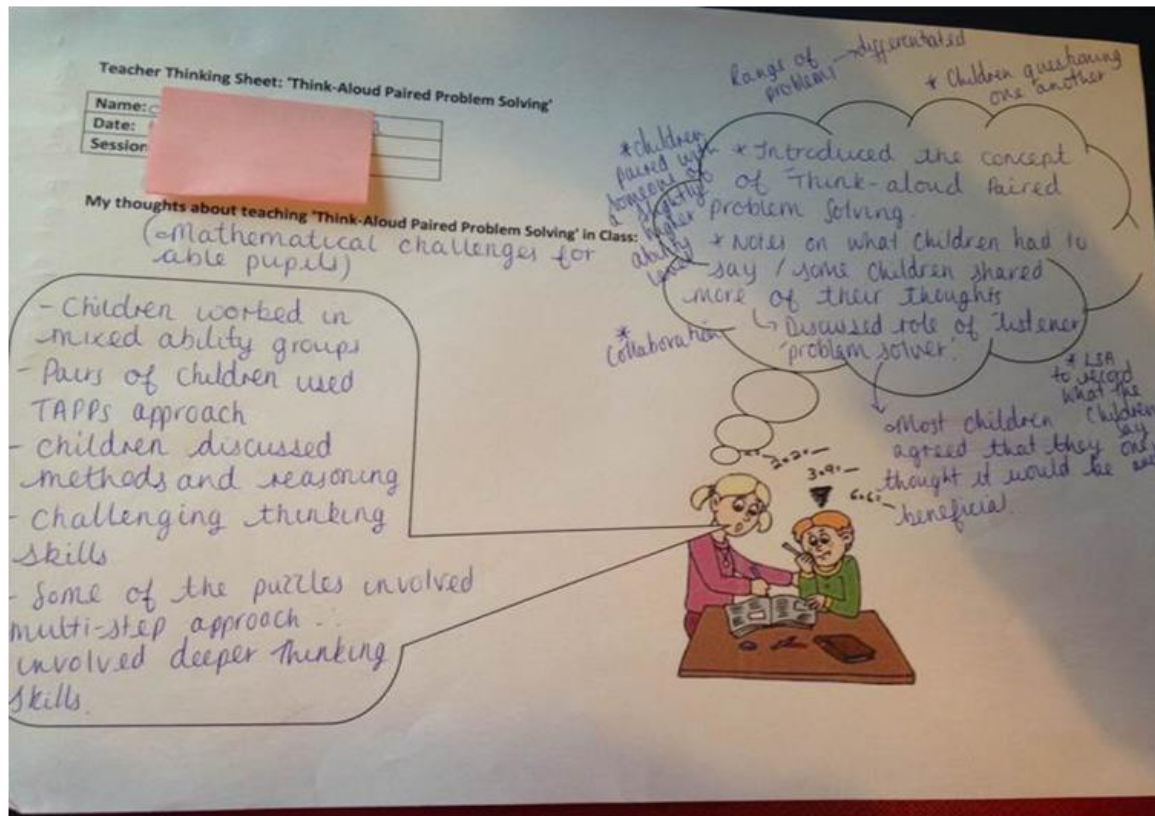 Teacher Thinking Sheet: 'Think-Aloud Paired Problem Solving'
Name:
Date:
Session
My thoughts about teaching 'Think-Aloud Paired Problem Solving' in Class:
(Mathematical challenges for
able pupils)
- Children worked in
mixed ability groups
- Pairs of children used
TAPPs approach
- children discussed
methods and reasoning
- Challenging thinking
skills
- Some of the puzzles involved
multi-step approach ..
involved deeper thinking
skills.
Range of → differentiated
problems
* Children questioning
one another
* children
paired with
someone of
a slightly
higher
ability
level
* Collaboration
* Introduced the concept
of Think-aloud Paired
problem Solving.
* Notes on what children had to
say / some children shared
more of their thoughts
↳ Discussed role of 'listener'
'problem solver'.
* LSA
to record
what the
children
say
Most children
agreed that they
thought it would be
beneficial.